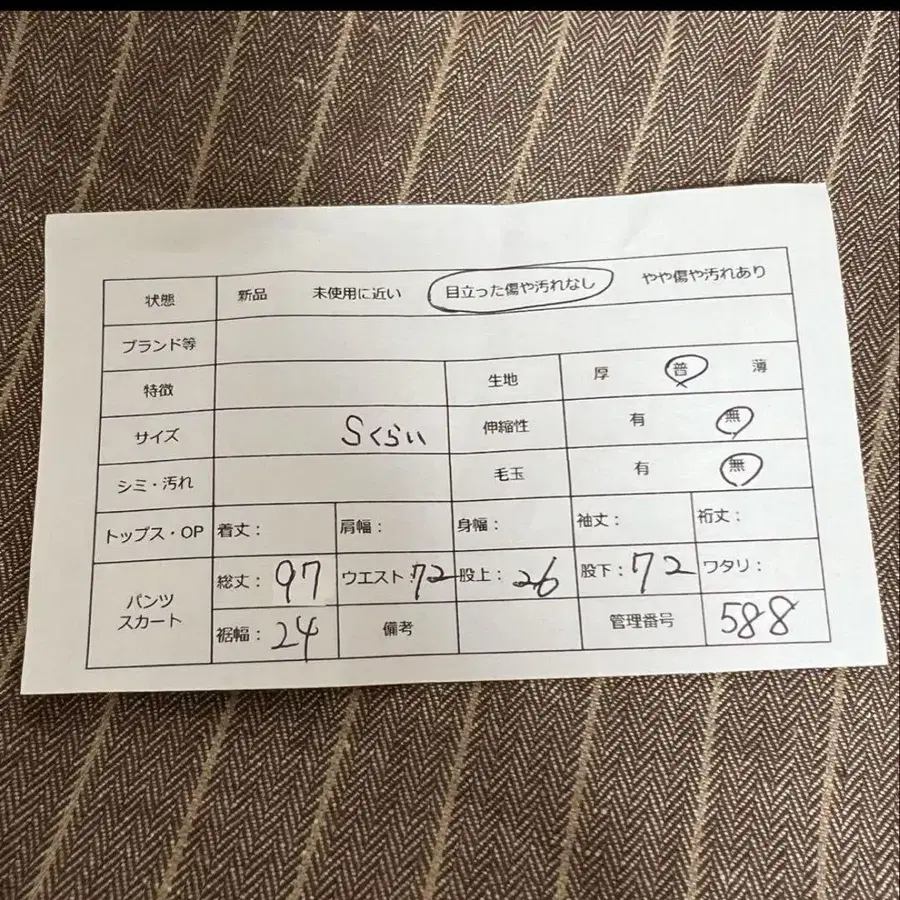 状態 新品 未使用に近い 目立った傷や汚れなし やや傷や汚れあり
ブランド等
特徴 生地 厚 普 薄
サイズ Sくらい 伸縮性 有 無
シミ・汚れ 毛玉 有 無
トップス・OP 着丈： 肩幅： 身幅： 袖丈： 裄丈：
パンツ スカート 総丈：97 ウエスト：72 股上：26 股下：72 ワタリ：
裾幅：24 備考 管理番号 588